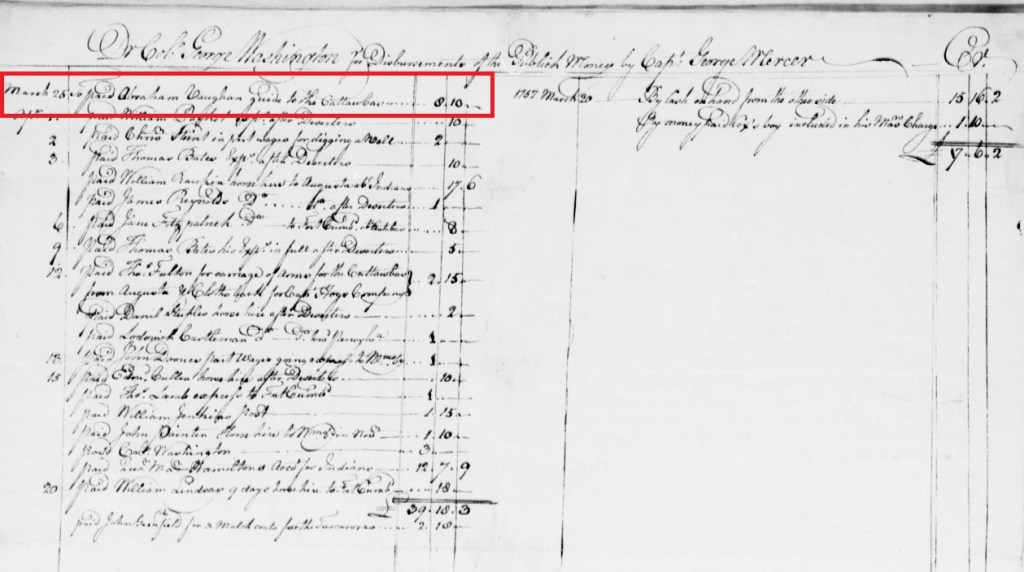 Dr Colo. George Washington for Disbursements of the Publick Money by Capt. George Mercer Cr.
March 25 To paid Abraham Vaughan guide to the Cattawbas 8 10
1 paid William after Deserters 10
2 paid Chrisr in part wages for digging a Well 2
3 paid Thomas Bates Exps. after Deserters 10
paid William Rankin horse hire to Augusta Indians 17 6
paid James Reynolds Do after Deserters 1
6 paid Jane Fitzpatrick Do to Fort Cumb. 8
9 paid Thomas Bates his Exps. in full after Deserters 5
12 paid Thos. Fulton for carriage of Arms for the Cattawbas 2 15
from Augusta & Cloths back for Capt. Hogs Company
paid Daniel horse hire after Deserters 2
paid Lodowick Castleman Do Do 1
13 paid John part Wages going express 1
15 paid Edmd. Cullen horse hire after Deserters 10
paid Thos. Lamb express to Fort Cumb. 1
paid William Jenkins 1 15
paid John Painter Horse hire to 1 10
paid Colo. Washington 3
paid Hamiltons Acct. for Indians 12 7 9
20 paid William Lindsay 9 days horse hire to Fort Cumb. 18
39 18 3
paid John for 2 Match coats for the Tuscaroras 2 18
1757 March 20 By Cash on hand from the other side 15 16 2
By money paid boy included in his Charge 1 10
7 6 2